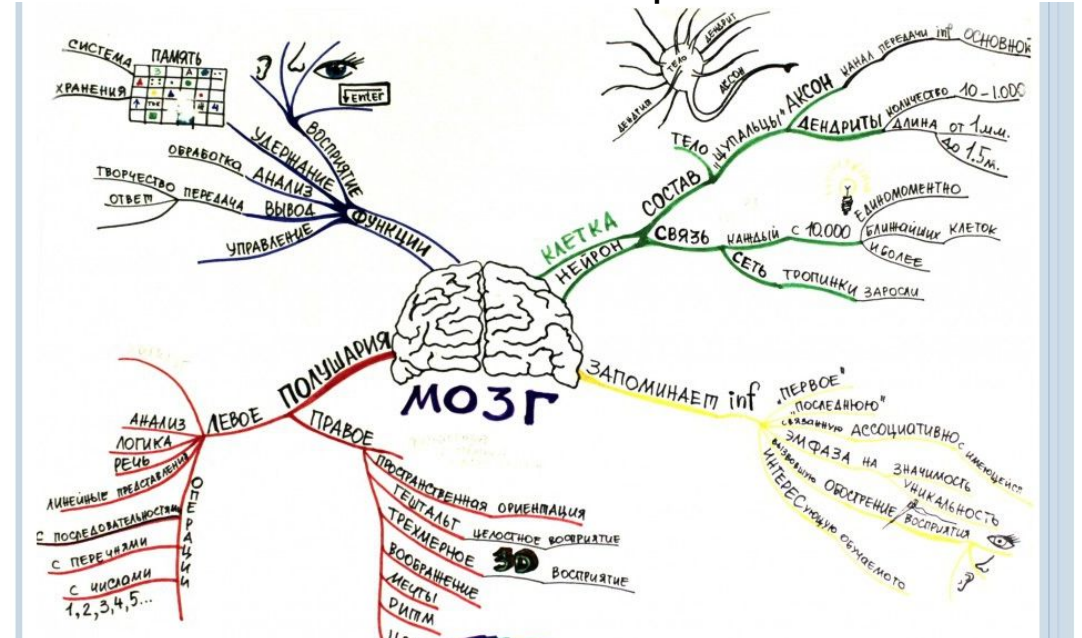 МОЗГ
ФУНКЦИИ
ВОСПРИЯТИЕ
Enter
УДЕРЖАНИЕ
ПАМЯТЬ
СИСТЕМА
ХРАНЕНИЯ
АНАЛИЗ
ОБРАБОТКА
ВЫВОД
ПЕРЕДАЧА
ТВОРЧЕСТВО
ОТВЕТ
УПРАВЛЕНИЕ
КЛЕТКА
НЕЙРОН
СОСТАВ
ТЕЛО
"ЩУПАЛЬЦЫ"
АКСОН
КАНАЛ ПЕРЕДАЧИ inf ОСНОВНОЙ
ДЕНДРИТЫ
КОЛИЧЕСТВО 10-1.000
ДЛИНА ОТ 1 мм.
ДО 1,5 м.
ДЕНДРИТ
ТЕЛО
АКСОН
СВЯЗЬ
КАЖДЫЙ С 10.000
ЕДИНОМОМЕНТНО
БЛИЖАЙШИХ КЛЕТОК
И БОЛЕЕ
СЕТЬ
ТРОПИНКИ ЗАРОСЛИ
ЗАПОМИНАЕТ inf
"ПЕРВОЕ"
"ПОСЛЕДНЮЮ"
СВЯЗАННУЮ АССОЦИАТИВНО С ИМЕЮЩЕЙСЯ
ЭМФАЗА НА ЗНАЧИМОСТЬ
УНИКАЛЬНОСТЬ
ВЫЗВОВШУЮ ОБОСТРЕНИЕ ВОСПРИЯТИЯ
ИНТЕРЕСУЮЩУЮ ОБУЧАЕМОГО
ПОЛУШАРИЯ
ЛЕВОЕ
АНАЛИЗ
ЛОГИКА
РЕЧЬ
ЛИНЕЙНЫЕ ПРЕДСТАВЛЕНИЯ
ОПЕРАЦИИ
С ПОСЛЕДОВАТЕЛЬНОСТЯМИ
С ПЕРЕЧНЯМИ
С ЧИСЛАМИ
1,2,3,4,5...
ПРАВОЕ
ПРОСТРАНСТВЕННАЯ ОРИЕНТАЦИЯ
ГЕШТАЛЬТ
ЦЕЛОСТНОЕ ВОСПРИЯТИЕ
ТРЕХМЕРНОЕ
3D
ВОСПРИЯТИЕ
ВООБРАЖЕНИЕ
МЕЧТЫ
РИТМ